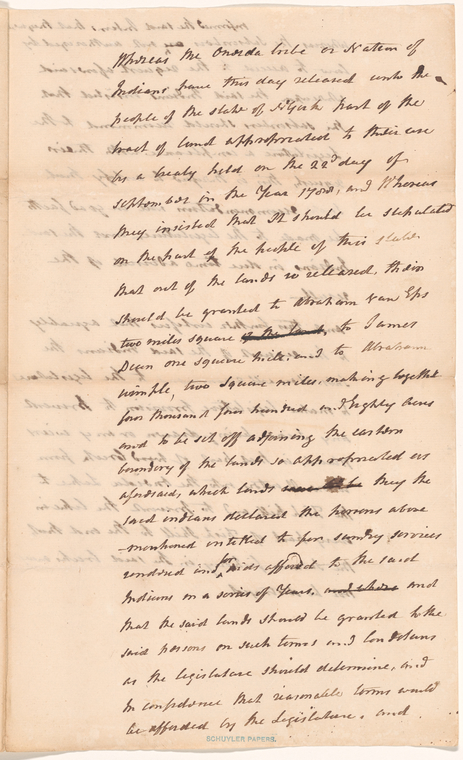 Whereas the Oneida tribe or Nation of
Indians have this day released unto the
people of the state of N York part of the
tract of land appropriated to their use
by a treaty held on the 22d day of
September in the Year 1788, and Whereas
they insisted that It should be stipulated
on the part of the people of this state
that out of the lands so released, their
should be granted to Abraham Van Eps
two miles square of the lands, to James
Dean one square mile. and to Abraham
wimple, two square miles. making together
four thousand four hundred and Eighty Acres
and to be set off adjoining the eastern
boundery of the lands so appropriated as
aforesaid, which lands they the
said indians declared the persons above
mentioned entitled to for sundry services
rendered and for aids afforded to the said
Indians in a series of Years, and where and
that the said lands should be granted to the
said persons on such terms and Conditions
as the legislature should determine, and
In confidence that reasonable terms would
be afforded by the Legislature. and
SCHUYLER PAPERS.